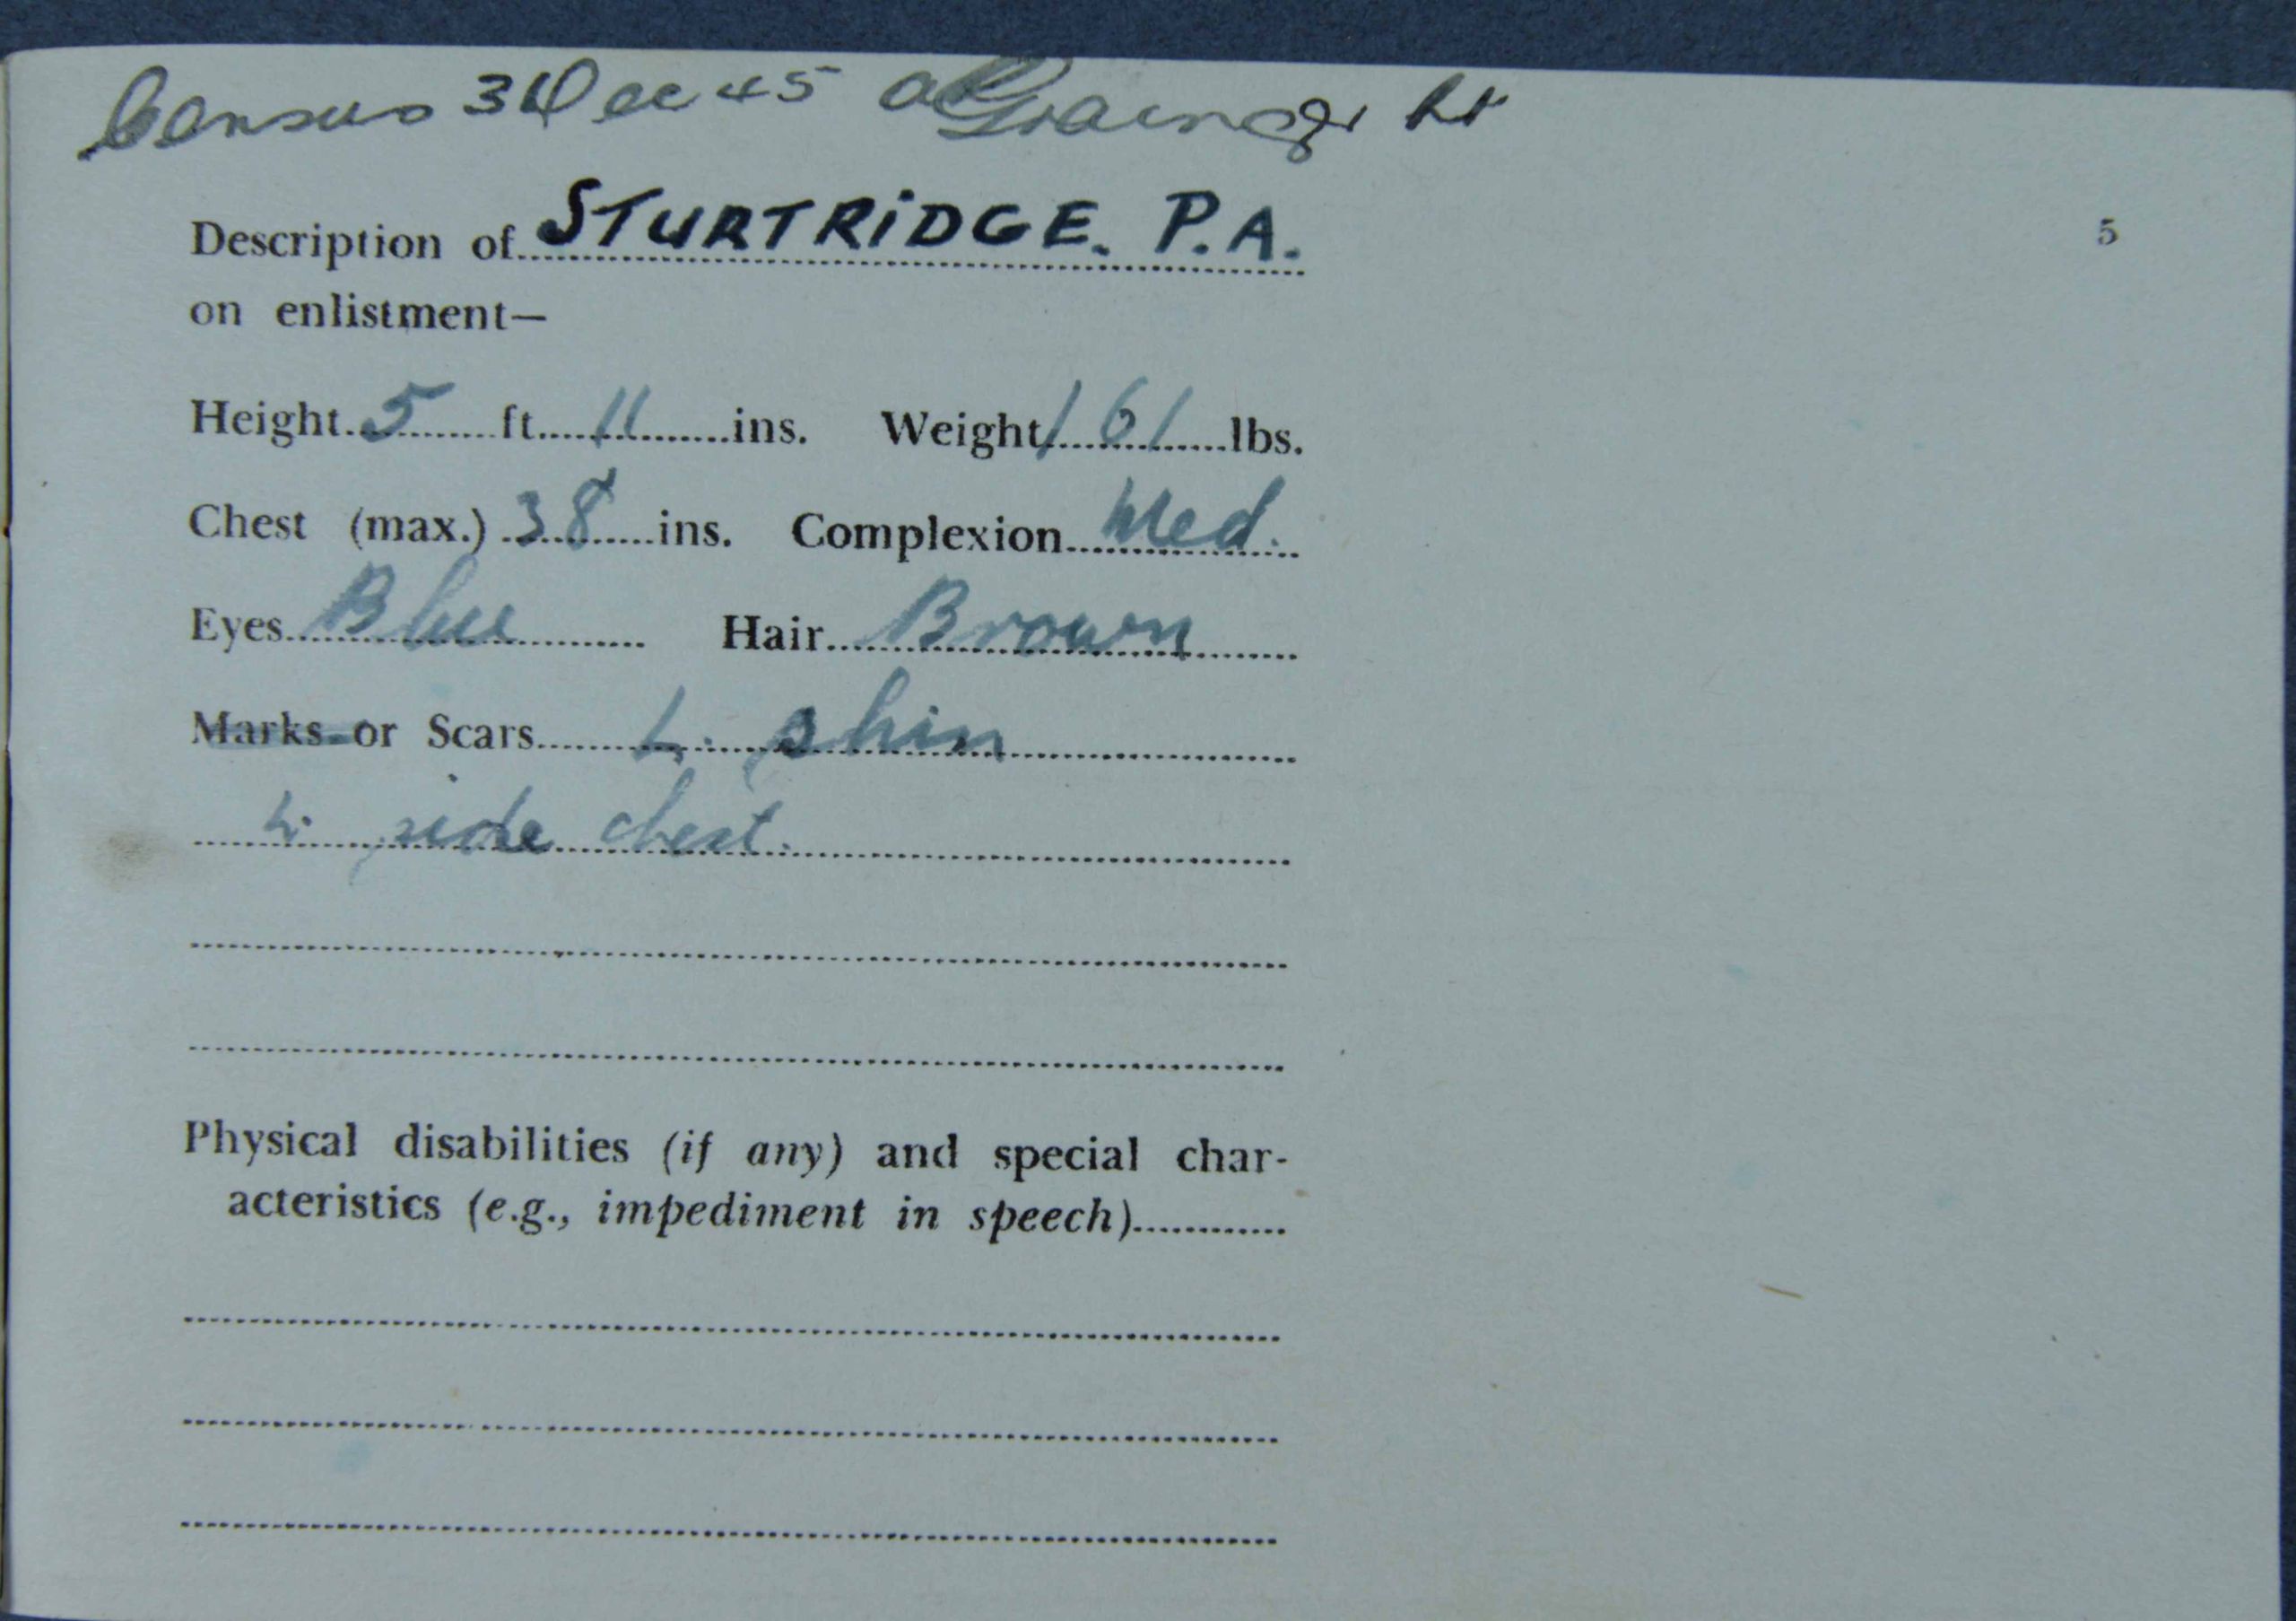 Census 31 Dec 45 Grainger Lt
Description of STURTRIDGE. P.A.
5
on enlistment—
Height 5 ft. 11 ins. Weight 161 lbs.
Chest (max.) 38 ins. Complexion Med.
Eyes Blue Hair Brown
Marks or Scars L. shin
L. side chest.
Physical disabilities (if any) and special char-
acteristics (e.g., impediment in speech)